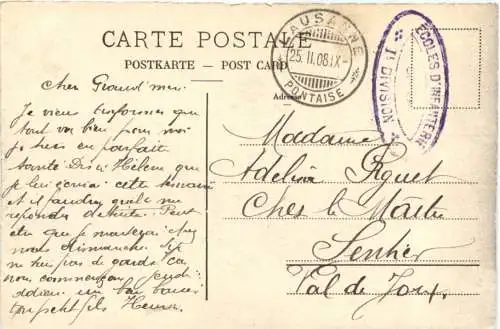 CARTE POSTALE
POSTKARTE — POST CARD
LAUSANNE
25.II.08.IX-
PONTAISE
ECOLES D'INFANTERIE
Iʳᵉ DIVISION
Cher Grand'mère
Je viens t'informer que
tout va bien pour moi
je suis en parfait
santé Dis à Hélène que
je lui écrirai cette semaine
et il faudra qu'elle me
réponde de suite. Peut
être que je
nous dimanche si je
ne suis pas de garde
nous
adieu un bon baiser
ton petit fils Henri
Madame
Adeline Piguet
Chez le Maître
Sentier
Val de Joux